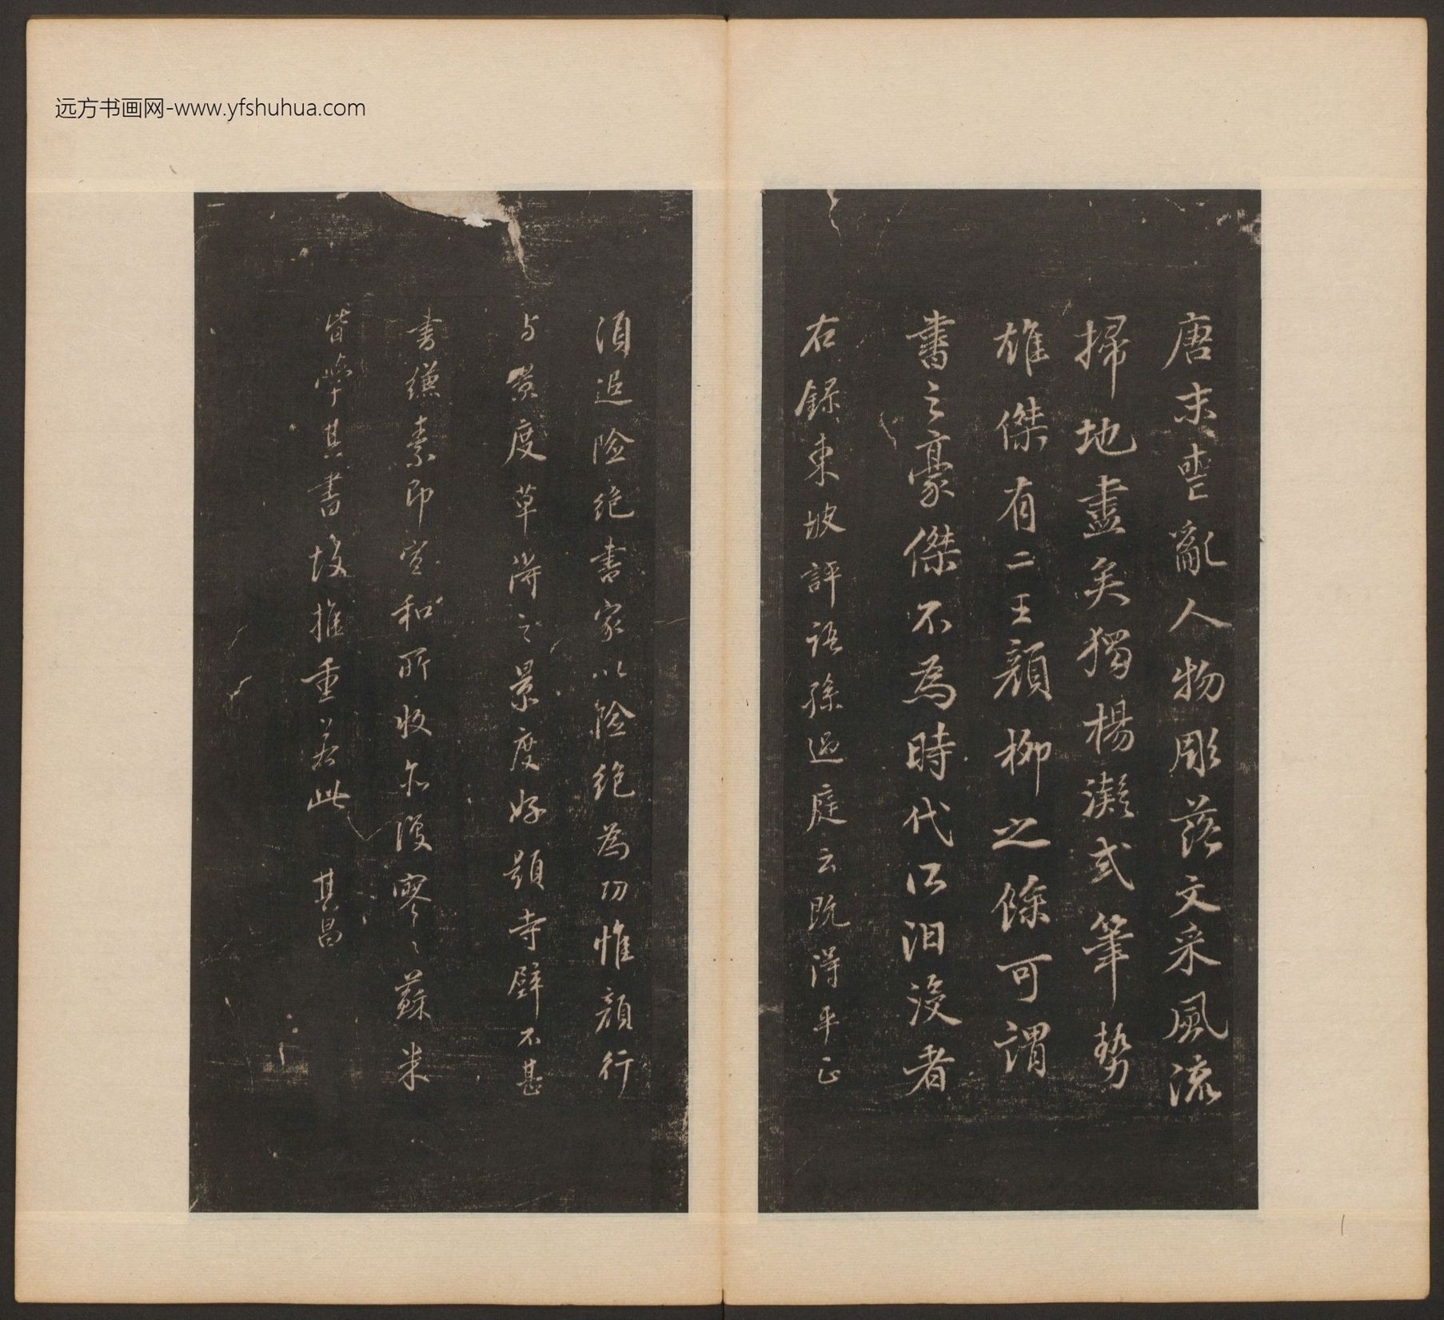 远方书画网-www.yfshuhua.com
唐末喪亂人物彫落文采風流
掃地盡矣獨楊凝式筆勢
雄傑有二王顏柳之餘可謂
書之豪傑不為時代所汨沒者
右錄東坡評語孫過庭云既得平正
須追險絕書家以險絕為功惟顏行
与景度草得之景度好題寺壁不甚
書縑素即宣和所收亦復寥〻蘇米
皆學其書故推重若此 其昌